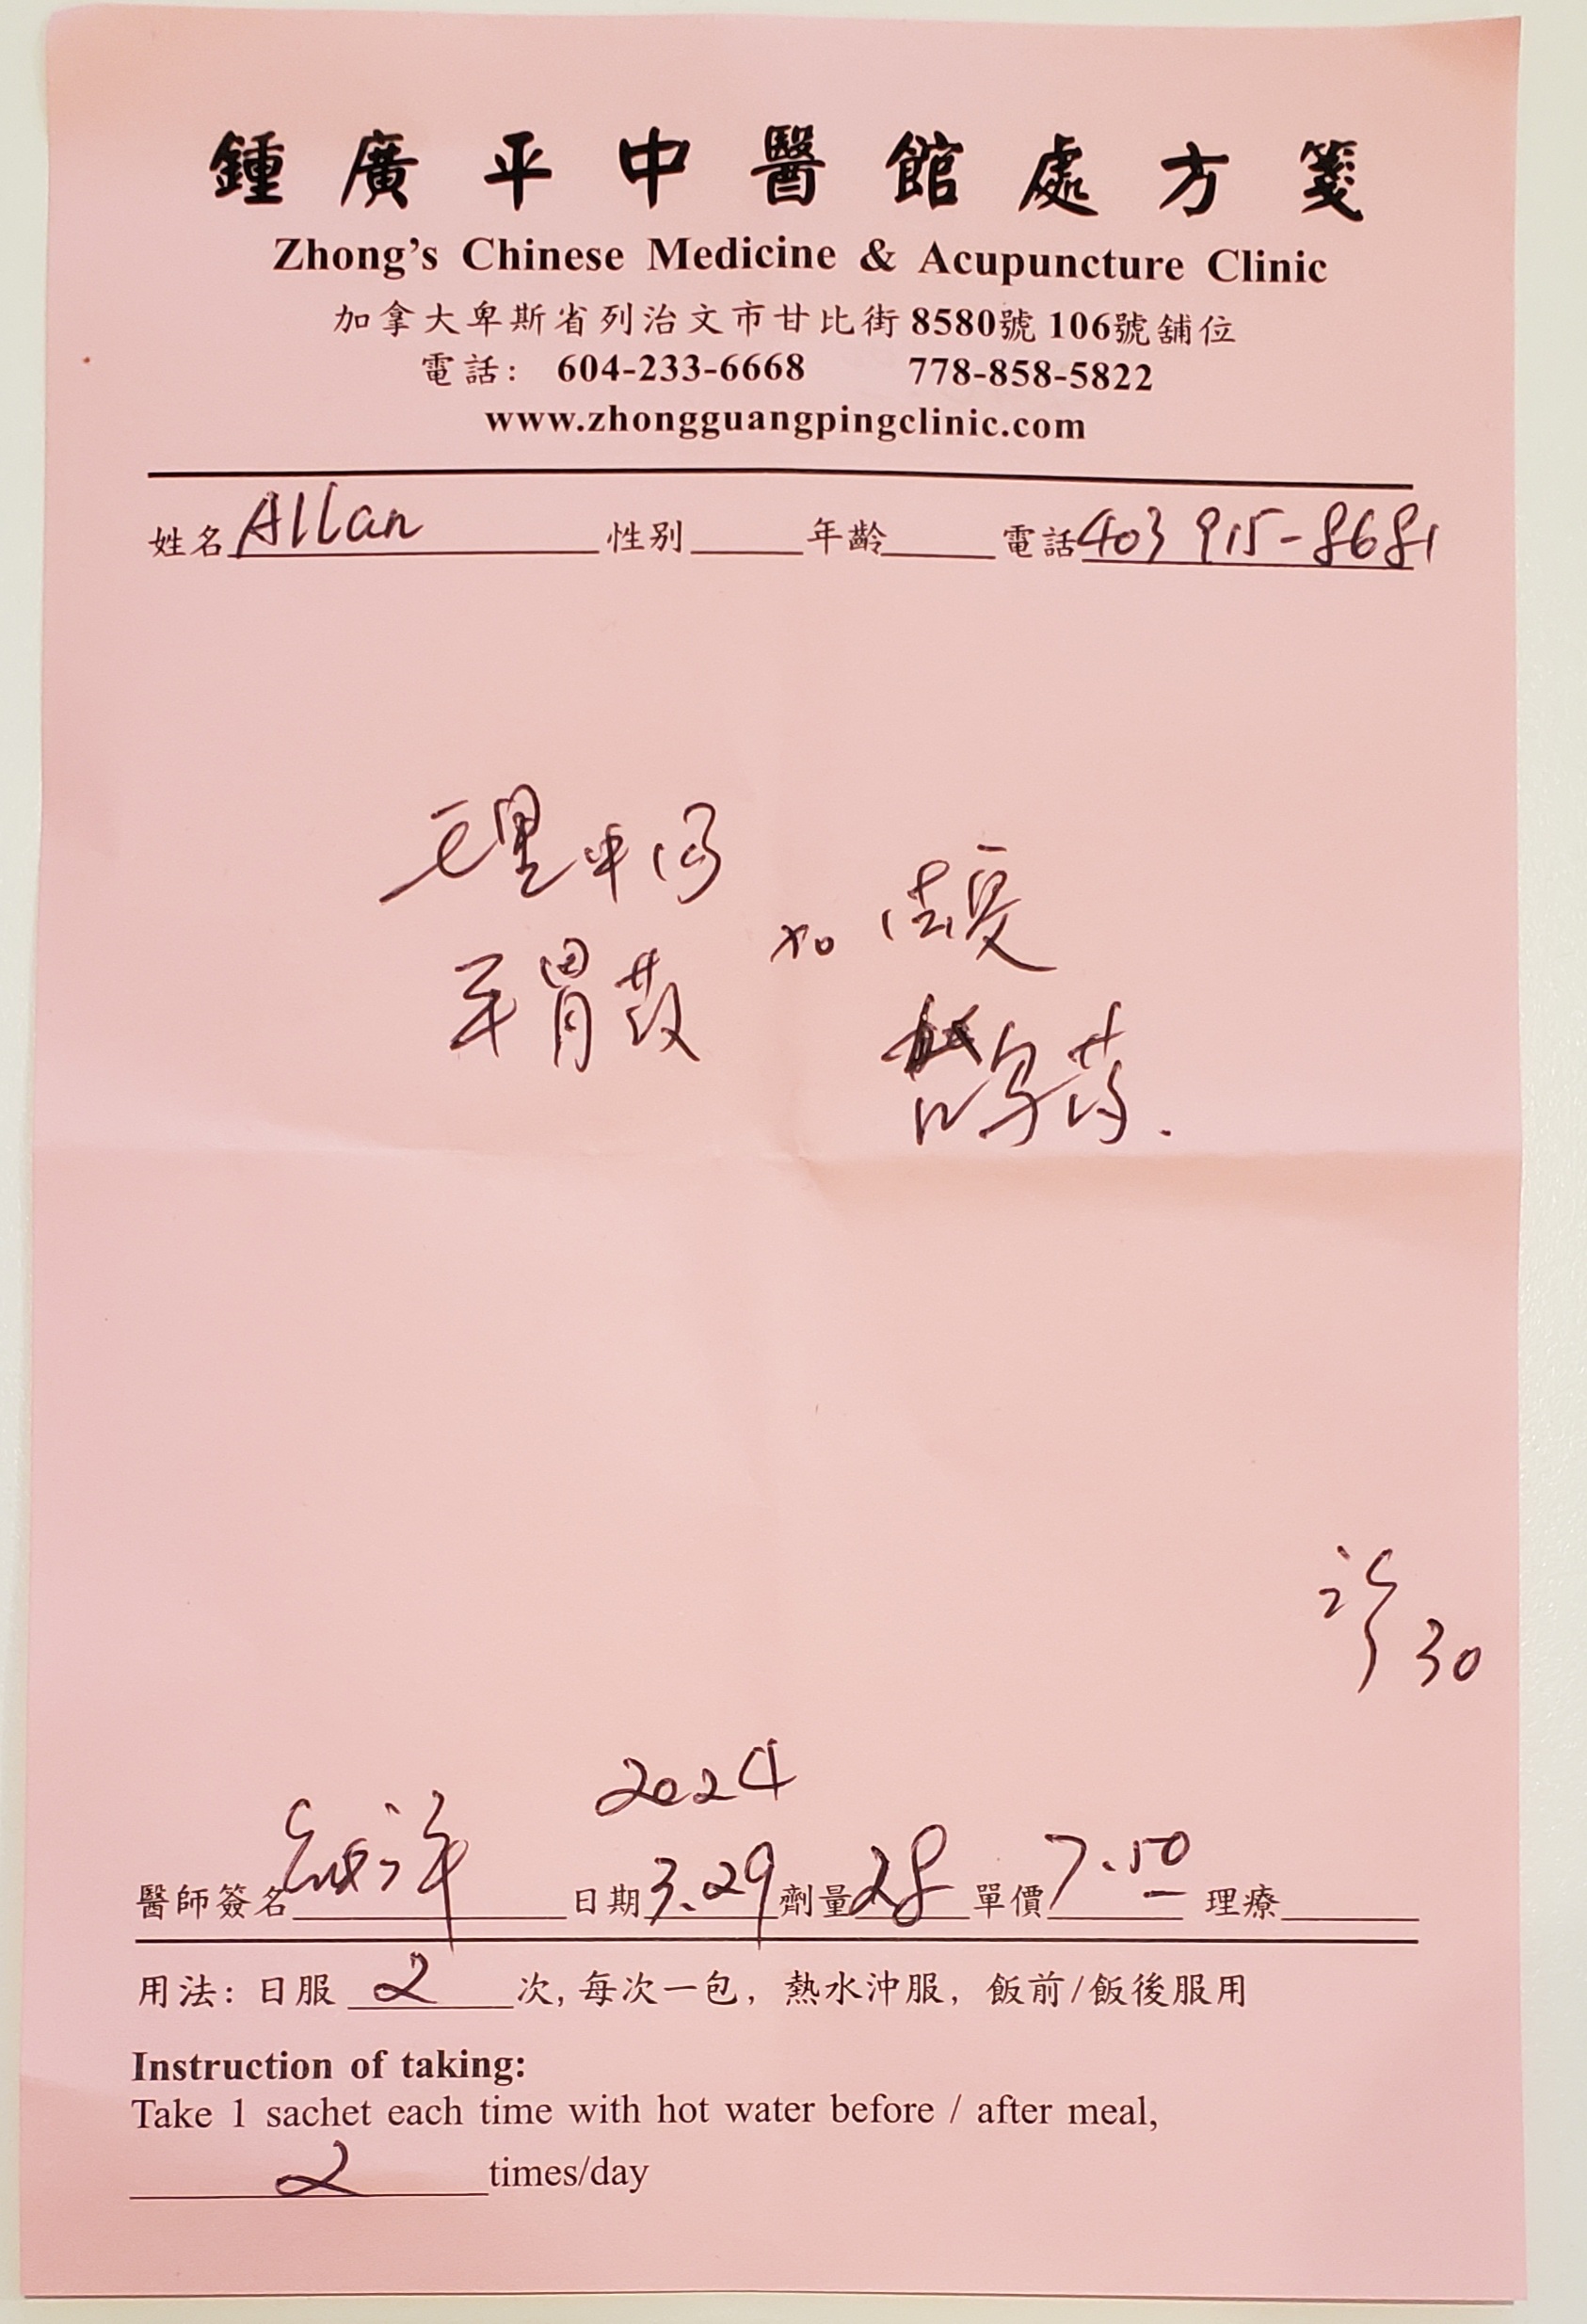 鍾廣平中醫館處方箋
Zhong's Chinese Medicine & Acupuncture Clinic
加拿大卑斯省列治文市甘比街8580號 106號舖位
電話: 604-233-6668 778-858-5822
www.zhongguangpingclinic.com
姓名 Allan 性別 年齡 電話 403 915-8681
平胃散
30
2024
醫師簽名 日期 3.29 劑量 28 單價 7.50 理療
用法: 日服 2 次, 每次一包, 熱水沖服, 飯前/飯後服用
Instruction of taking:
Take 1 sachet each time with hot water before / after meal,
2 times/day